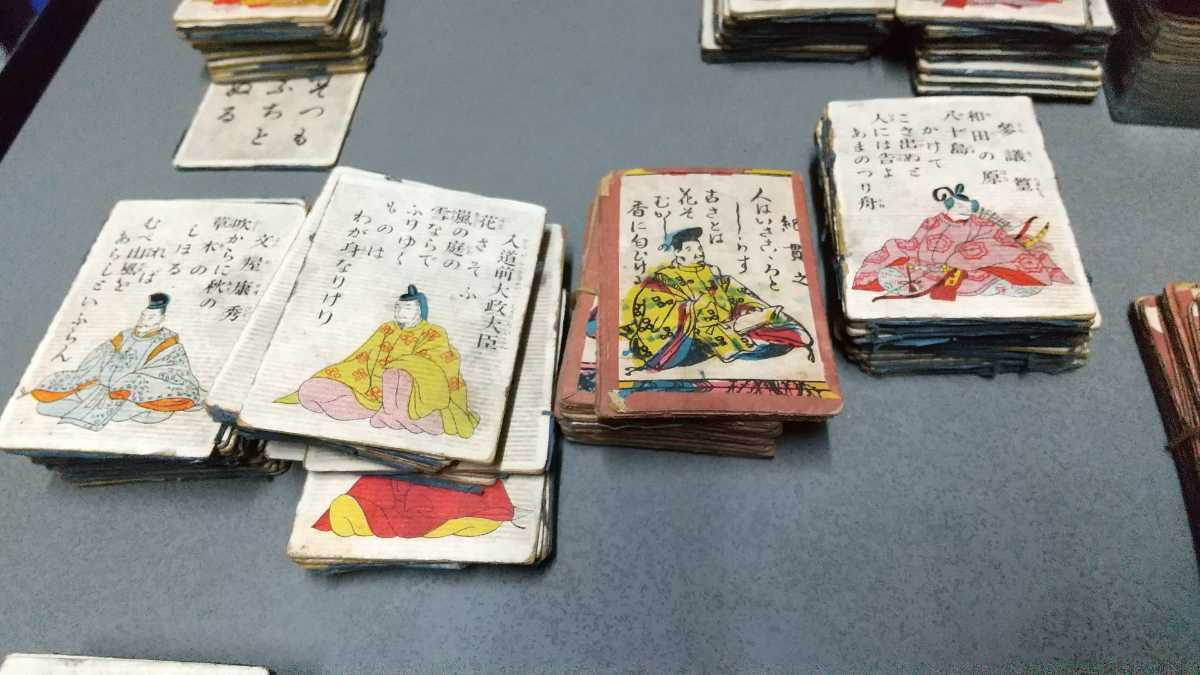 そつも
ふちと
ぬる
文屋康秀
吹からに秋の
草木の
しほる
れば
むべ山風を
あらしといふらん
入道前大政大臣
花さそふ
嵐の庭の
雪ならで
ふりゆく
ものは
わが身なりけり
紀貫之
人はいさこゝろも
しらす
古さとは
花そ
むかしの
香に匂ひける
參議篁
和田の原
八十島
かけて
こき出ぬと
人には告よ
あまのつり舟